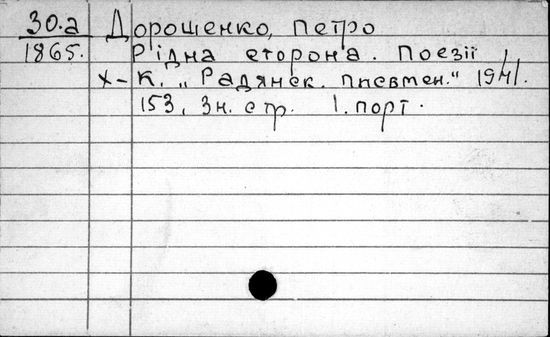 30.а Дорошенко, Петро
1865. Рідна сторона. Поезії
х- К. „Радянск. письмен." 1941.
153, 3н. стр. 1. порт.